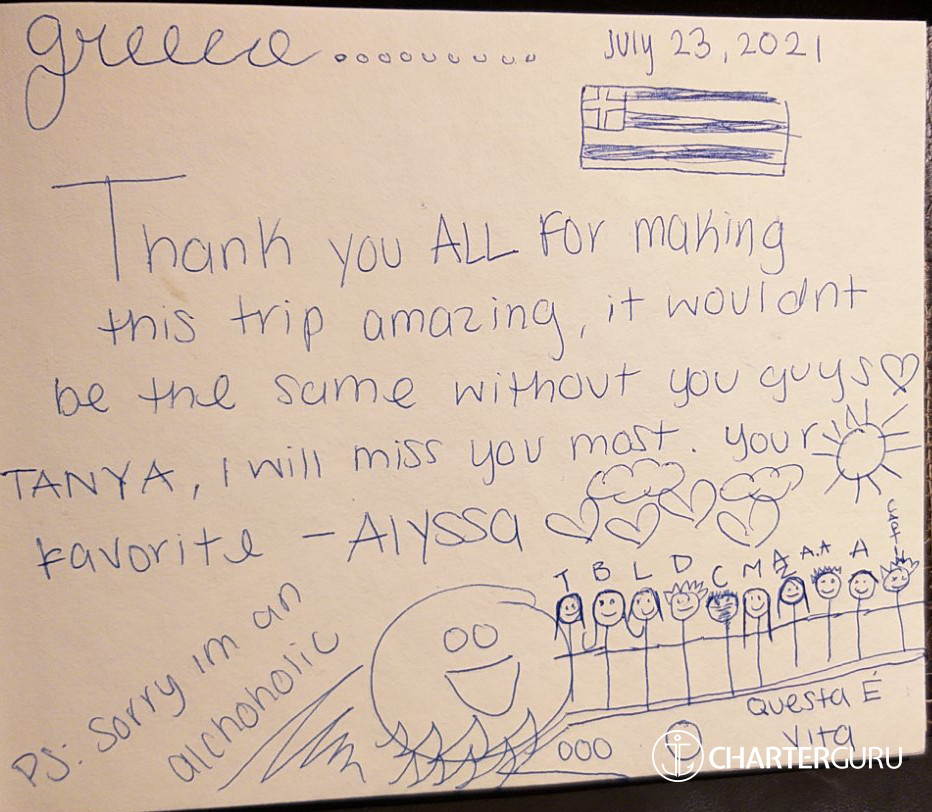 greece.........
July 23, 2021
Thank you ALL For making
this trip amazing, it wouldnt
be the same without you guys
TANYA, I will miss you most. your
Favorite - Alyssa
T B L D C M A.A A
PS: Sorry im an
alchoholic
Questa É
Vita
CHARTERGURU